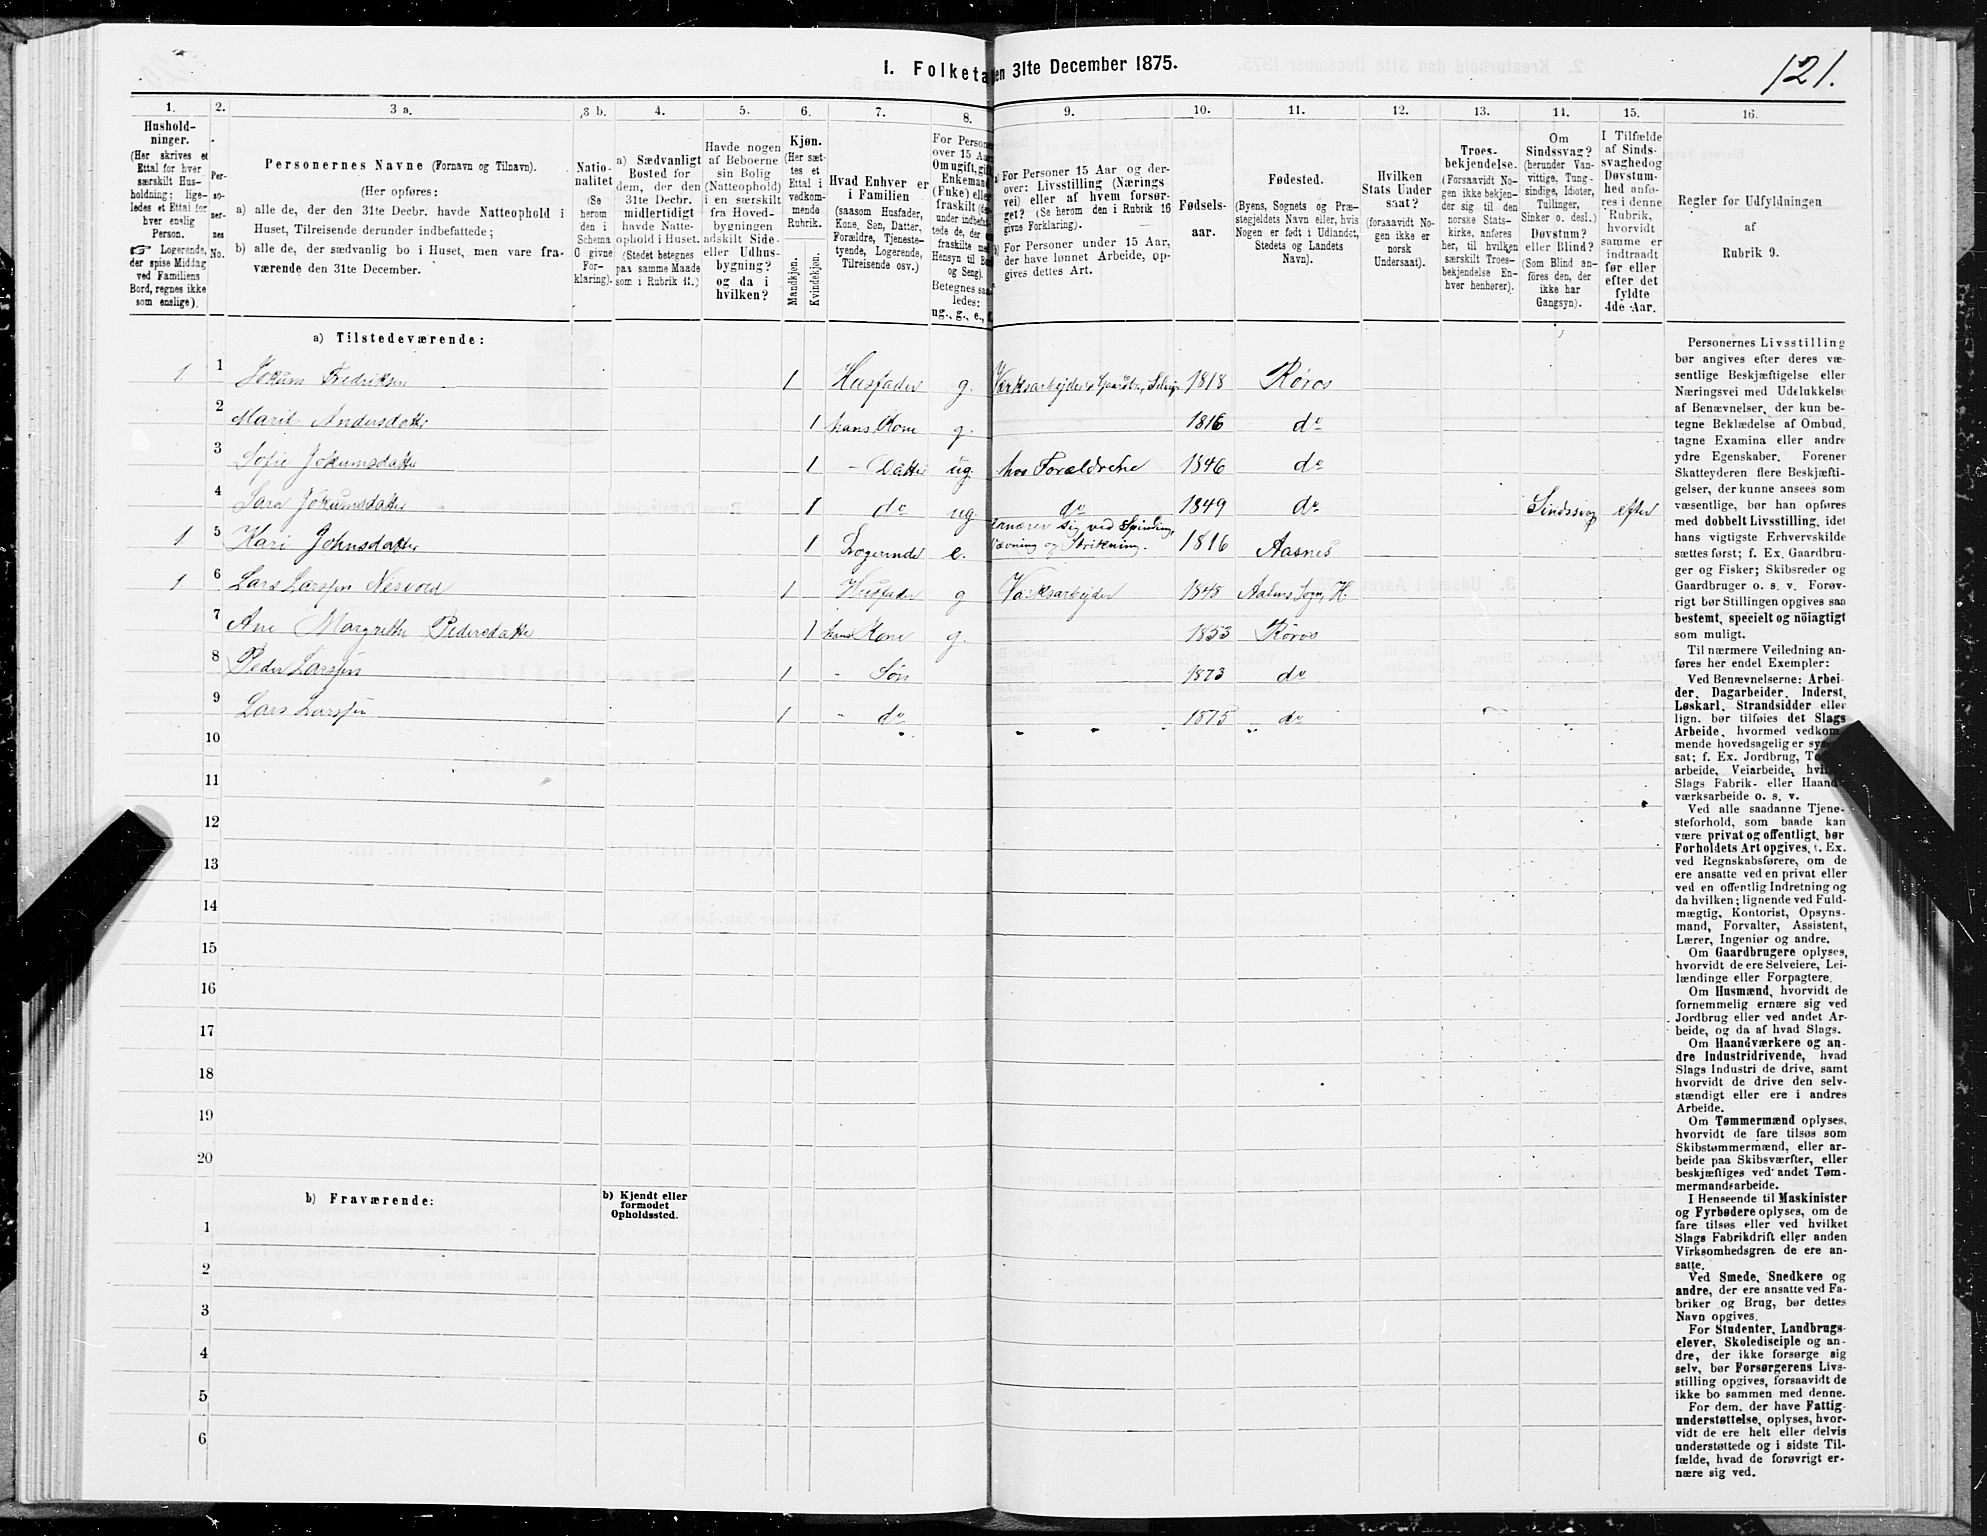 121.
I. Folketa en 31te December 1875.
1. 2. 3 a. 3 b. 4. 5. 6. 7. 8. 9. 10. 11. 12. 13. 14. 15. 16.
Hushold-
ninger.
(Her skrives et
Ettal for hver
særskilt Hus-
holdning; lige-
ledes et Ettal for
hver enslig
Person.
☞ Logerende,
der spise Middag
ved Familiens
Bord, regnes ikke
som enslige).
Per-
so-
ner-
nes
No.
Personernes Navne (Fornavn og Tilnavn).
(Her opføres:
a) alle de, der den 31te Decbr. havde Natteophold i
Huset, Tilreisende derunder indbefattede;
b) alle de, der sædvanlig bo i Huset, men vare fra-
værende den 31te December.
Natio-
nalitet
(Se
herom
den i
Schema
C givne
For-
klaring).
a) Sædvanligt
Bosted for
dem, der den
31te Decbr.
midlertidigt
havde Natte-
ophold i Huset.
(Stedet betegnes
paa samme Maade
som i Rubrik 11.)
Havde nogen
af Beboerne
sin Bolig
(Natteophold)
i en særskilt
fra Hoved-
bygningen
adskilt Side-
eller Udhus-
bygning?
og da i
hvilken?
Kjøn.
(Her sæt-
tes et
Ettal i
vedkom-
mende
Rubrik.
Mandkjøn.
Kvindekjøn.
Hvad Enhver er
i Familien
(saasom Husfader,
Kone, Søn, Datter,
Forældre, Tjeneste-
tyende, Logerende,
Tilreisende osv.)
For Persone
over 15 Aa
Omugift, gif
Enkemand
(Enke) elle
fraskilt (de
under indbefat-
tede de, der e
fraskilte me
Hensyn til Bo
og Seng).
Betegnes saa-
ledes:
ug., g., e., f.
a) For Personer 15 Aar og der-
over: Livsstilling (Nærings
vei) eller af hvem forsør-
get? (Se herom den i Rubrik 16
givne Forklaring).
b) For Personer under 15 Aar,
der have lønnet Arbeide, op-
gives dettes Art.
Fødsels-
aar.
Fødested.
(Byens, Sognets og Præ-
stegjeldets Navn eller, hvis
Nogen er født i Udlandet,
Stedets og Landets
Navn).
Hvilken
Stats Under-
saat?
(forsaavidt No-
gen ikke er
norsk
Undersaat).
Troes-
bekjendelse.
(Forsaavidt No-
gen ikke bekjen-
der sig til den
norske Stats-
kirke, anføres
her, til hvilken
særskilt Troes-
bekjendelse En-
hver henhører).
Om
Sindssvag?
(herunder Van-
vittige, Tung-
sindige, Idioter,
Tullinger,
Sinker o. desl.)
Døvstum?
eller Blind?
(Som Blind an-
føres den, der
ikke har
Gangsyn).
I Tilfælde
af Sinds-
svaghedog
Døvstum-
hed anfø-
res i denne
Rubrik,
hvorvidt
samme er
indtraadt
før eller
efter det
fyldte
4de Aar.
Regler for Udfyldningen
af
Rubrik 9.
a) Tilstedeværende:
1 1 Jokum Fredriksen 1 Husfader g. Værksarbejder 1818 Røros
2 Marit Andersdatter 1 hans Kone g. 1816 do
3 Sofie Jokumsdatter 1 - Datter ug. hos Forældrene 1846 do
4 Sara Jokumsdatter 1 do ug. do 1849 do Sindssvag efter
1 5 Kari Johnsdatter 1 Logerende e. ernærer sig ved Spinding,
Vævning og Strikning. 1816 Aasnes
1 6 Lars Larssen Nesvold 1 Husfader g Værksarbejder 1848 Aalens Sogn, H.
7 Ane Margrethe Pedersdatter 1 hans Kone g. 1853 Røros
8 Peder Larssen 1 - Søn 1873 do
9 Lars Larssen 1 - do 1875 do
10
11
12
13
14
15
16
17
18
19
20
b) Fraværende:
b) Kjendt eller
formodet
Opholdssted.
1
2
3
4
5
6
Personernes Livsstilling
bør angives efter deres væ-
sentlige Beskjæftigelse eller
Næringsvei med Udelukkelse
af Benævnelser, der kun be-
tegne Beklædelse af Ombud,
tagne Examina eller andre
ydre Egenskaber. Forener
Skatteyderen flere Beskjæfti-
gelser, der kunne ansees som
væsentlige, bør han opføres
med dobbelt Livsstilling, idet
hans vigtigste Erhvervskilde
sættes først; f. Ex. Gaardbru-
ger og Fisker; Skibsreder og
Gaardbruger o. s. v. Forøv-
rigt bør Stillingen opgives saa
bestemt, specielt og nöiagtigt
som muligt.
Til nærmere Veiledning an-
føres her endel Exempler:
Ved Benævnelserne: Arbei-
der, Dagarbeider, Inderst,
Løskarl, Strandsidder eller
lign. bør tilføies det Slags
Arbeide, hvormed vedkom-
mende hovedsagelig er syssel-
sat; f. Ex. Jordbrug, Tømmer-
arbeide, Veiarbeide, hvilket
Slags Fabrik- eller Haand-
værksarbeide o. s. v.
Ved alle saadanne Tjene-
steforhold, som baade kan
være privat og offentligt, bør
Forholdets Art opgives, f. Ex.
ved Regnskabsførere, om de
ere ansatte ved en privat eller
ved en offentlig Indretning og
da hvilken; lignende ved Fuld-
mægtig, Kontorist, Opsyns-
mand, Forvalter, Assistent,
Lærer, Ingeniør og andre.
Om Gaardbrugere oplyses,
hvorvidt de ere Selveiere, Lei-
lændinge eller Forpagtere.
Om Husmænd, hvorvidt de
fornemmelig ernære sig ved
Jordbrug eller ved andet Ar-
beide, og da af hvad Slags.
Om Haandværkere og an-
dre Industridrivende, hvad
Slags Industri de drive, samt
hvorvidt de drive den selv-
stændigt eller ere i andres
Arbeide.
Om Tømmermænd oplyses,
hvorvidt de fare tilsøs som
Skibstømmermænd, eller ar-
beide paa Skibsværfter, eller
beskjæftiges ved andet Tøm-
mermandsarbeide.
I Henseende til Maskinister
og Fyrbødere oplyses, om de
fare tilsøs eller ved hvilket
Slags Fabrikdrift eller anden
Virksomhedsgren de ere an-
satte.
Ved Smede, Snedkere og
andre, der ere ansatte ved Fa-
briker og Brug, bør dettes
Navn opgives.
For Studenter, Landbrugs-
elever, Skoledisciple og an-
dre, der ikke forsørge sig
selv, bør Forsørgerens Livs-
stilling opgives, forsaavidt de
ikke bo sammen med denne.
For dem, der have Fattig-
understøttelse, oplyses, hvor-
vidt de ere helt eller delvis
understøttede og i sidste Til-
fælde, hvad de forøvrigt er-
nære sig ved.